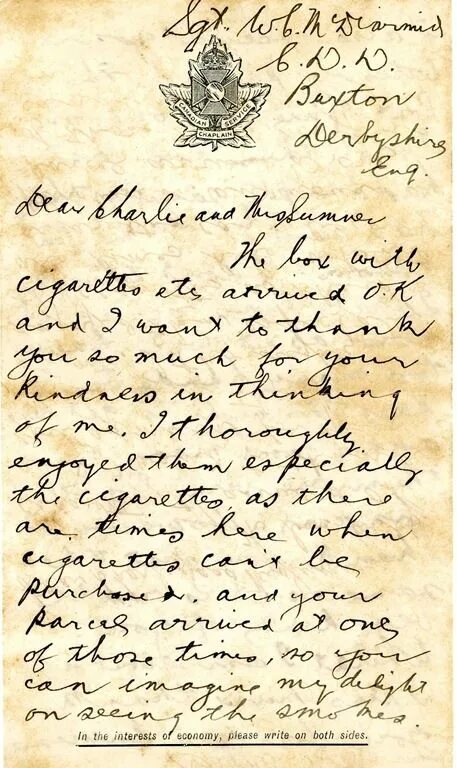 Sgt. W.C. McDiarmid
C.D.D.
Buxton
Derbyshire
Eng.
CANADIAN CHAPLAIN SERVICE
Dear Charlie and Mrs Sumner
The box with
cigarettes etc arrived O.K
and I want to thank
you so much for your
kindness in thinking
of me. I thoroughly
enjoyed them especially
the cigarettes, as there
are times here when
cigarettes can't be
purchased. and your
parcel arrived at one
of those times, so you
can imagine my delight
on seeing the smokes.
In the interests of economy, please write on both sides.